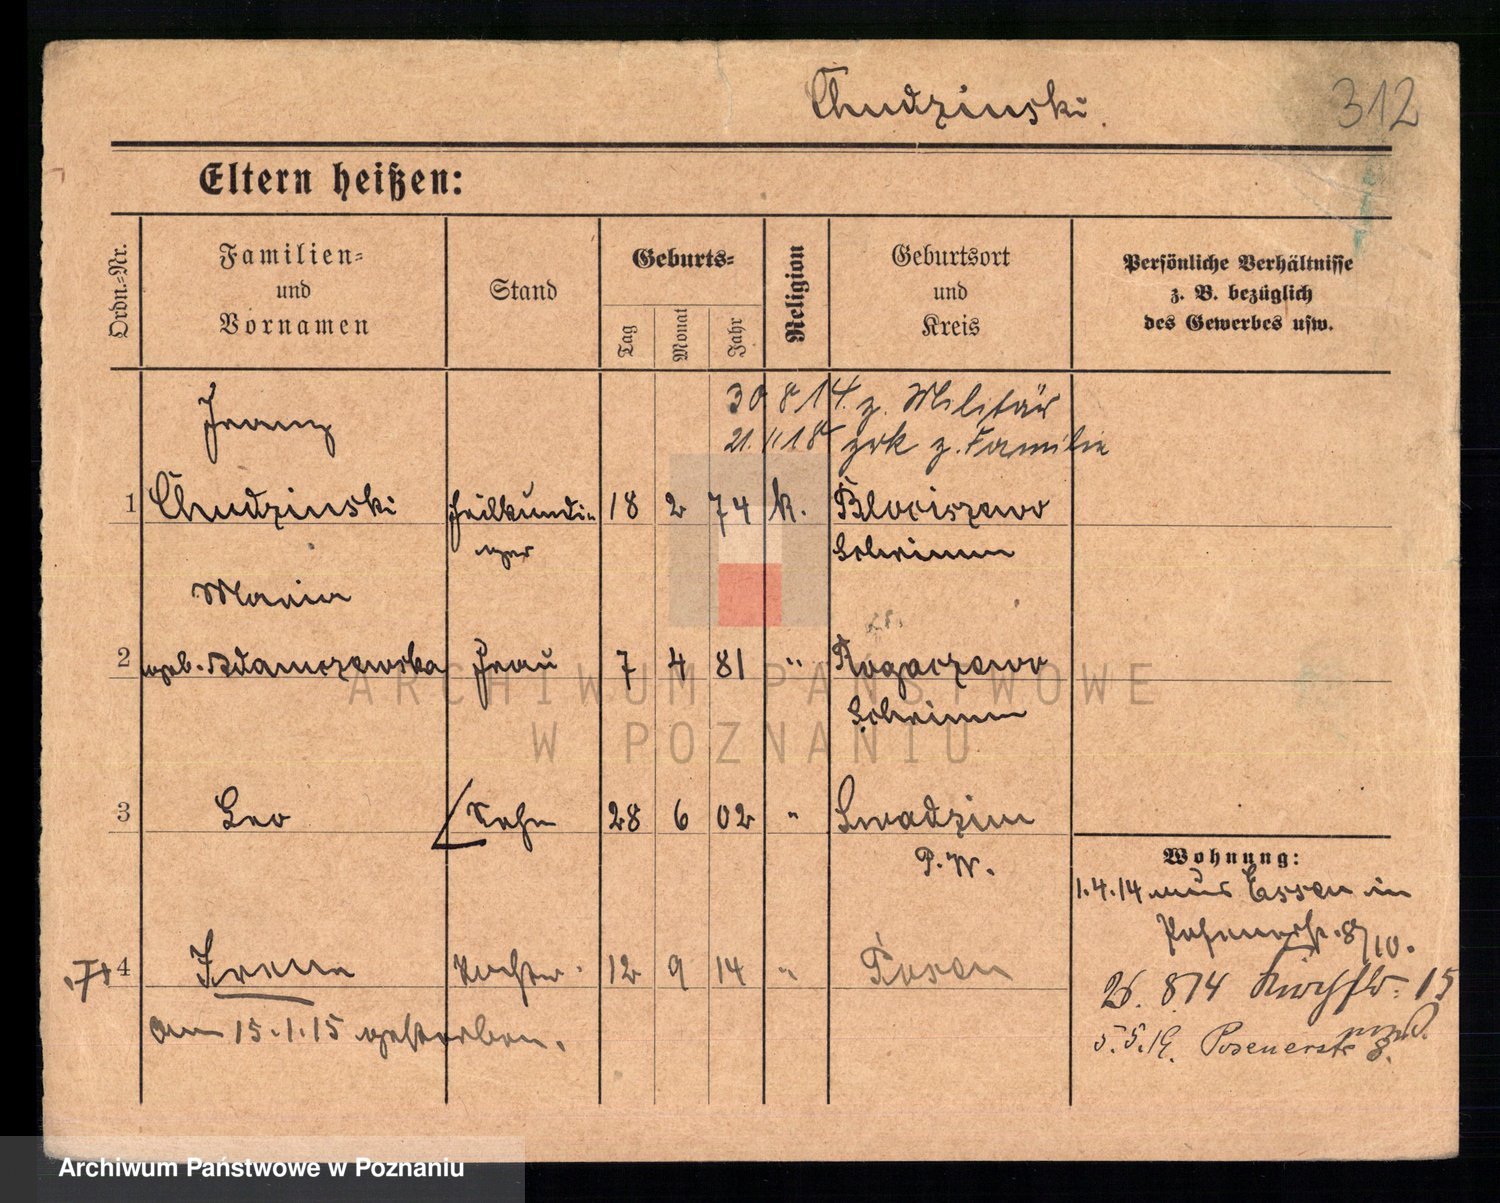 Chudzinski.
312
Eltern heißen:
Ordn.-Nr.
Familien-
und
Vornamen
Stand
Geburts-
Tag
Monat
Jahr
Religion
Geburtsort
und
Kreis
Persönliche Verhältnisse
z. B. bezüglich
des Gewerbes usw.
30 8 14. z. Militär
21.11 18 zrk z. Familie
Franz
1 Chudzinski Heilkundi- 18 2 74 k. Blociszewo
ger Schrimm
Maria
2 geb. Adamczewska Frau 7 4 81 " Rogaczewo
Schrimm
3 Leo Sohn 28 6 02 " Swadzim
P. W.
Wohnung:
1.4.14 aus Essen in
Posenerstr. 8/10.
4 Irena Tochter 12 9 14 " Posen
am 15.1.15 gestorben.
26. 8 14 15
5.5.19. Posenerstr 8.
ARCHIWUM PAŃSTWOWE
W POZNANIU
Archiwum Państwowe w Poznaniu